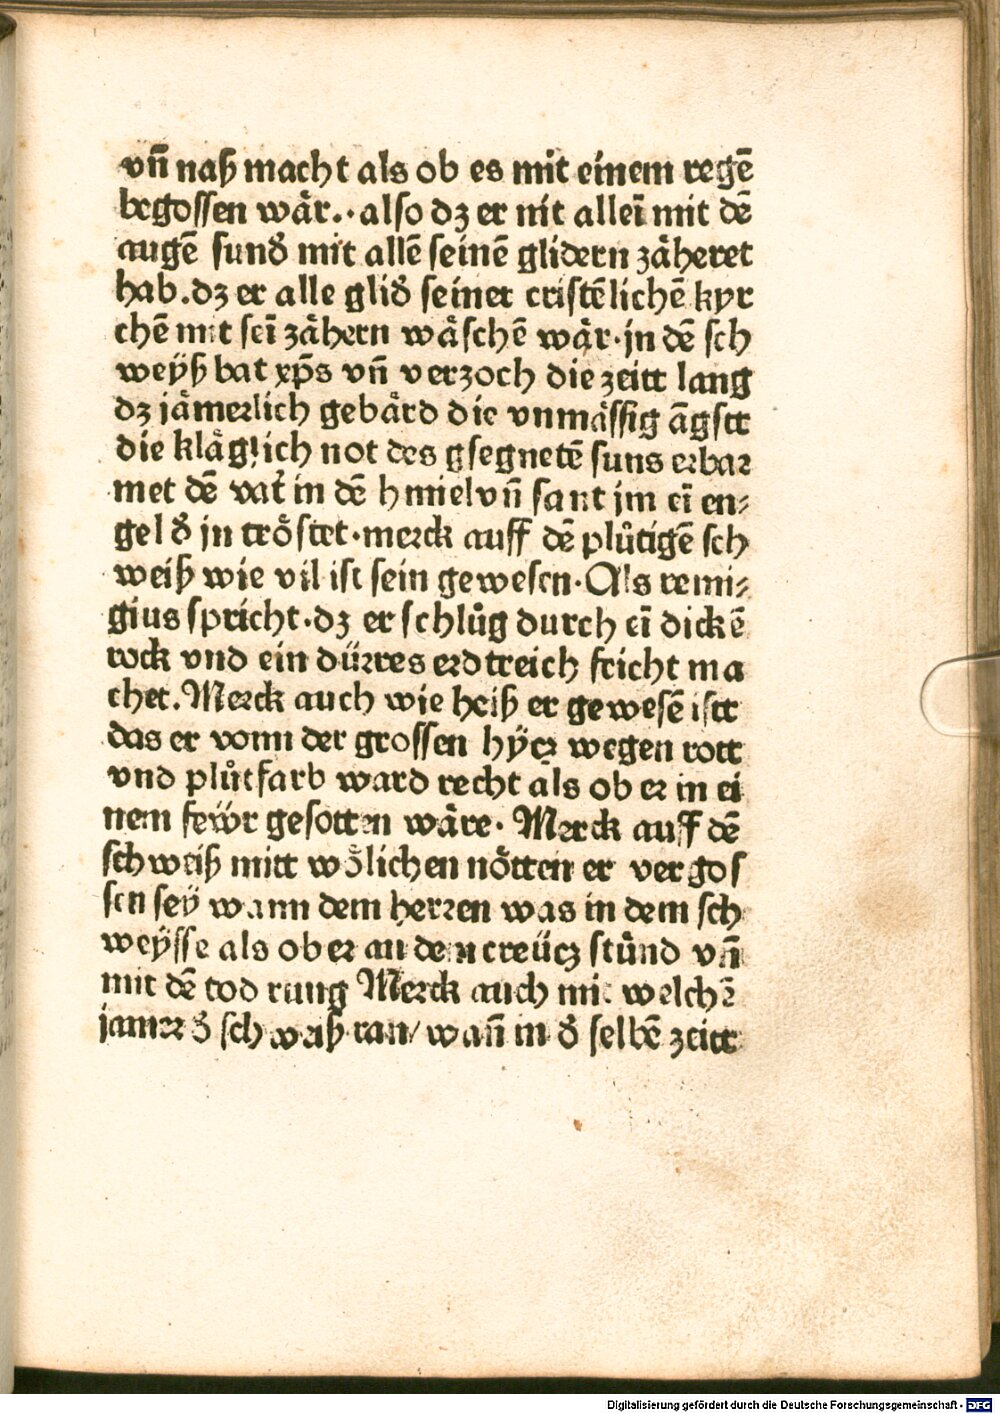 vn̄ naß macht als ob es mit einem regē
begossen wär.. also dz er nit alleī mit dē
augē sund̕ mit allē seinē glidern zäheret
hab. dz er alle glid̕ seiner cristēlichē kyr
chē mit seī zähern wäschē wär. jn dē sch
weÿß bat xp̄s vn̄ verzoch die zeitt lang
dz jämerlich gebärd die vnmässig āgstt
die kläglich not des gsegnetē suns erbar
met dē vat̕ in dē hmiel vn̄ sant jm eī en⸗
gel d̕ jn tröstet. merck auff dē plůtigē sch
weiß wie vil ist sein gewesen. Als remi⸗
gius spricht. dz er schlůg durch eī dickē
rock vnd ein dürres erdtreich feicht ma
chet. Merck auch wie heiß er gewesē istt
das er vonn der grossen hÿcz wegen rott
vnd plůtfarb ward recht als ob er in ei
nem feẅr gesotten wäre. Merck auff dē
schweiß mitt wölichen nötten er vergos
sen seÿ wann dem herren was in dem sch
weÿsse als ob er an dem creücz stůnd vn̄
mit dē tod rung Merck auch mit welchē
jamer d̕ schwaiß ran/ wan̄ in d̕ selbē zeitt
Digitalisierung gefördert durch die Deutsche Forschungsgemeinschaft - DFG